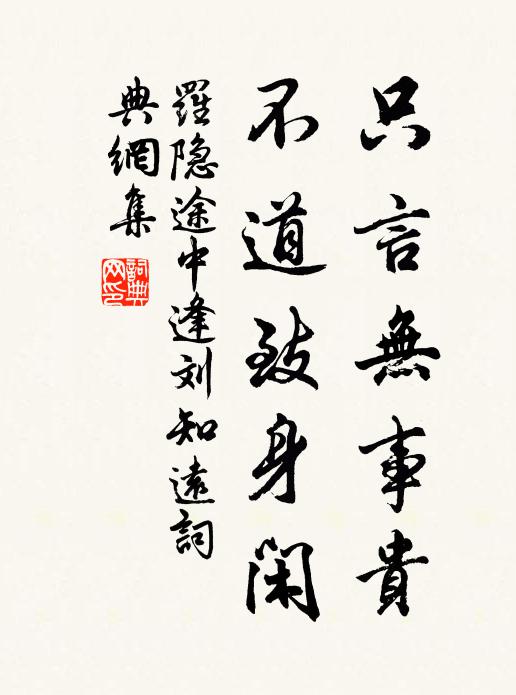 只言無事貴
不道致身閑
羅隐途中逢刘知遠詞
典網集
詞典网印